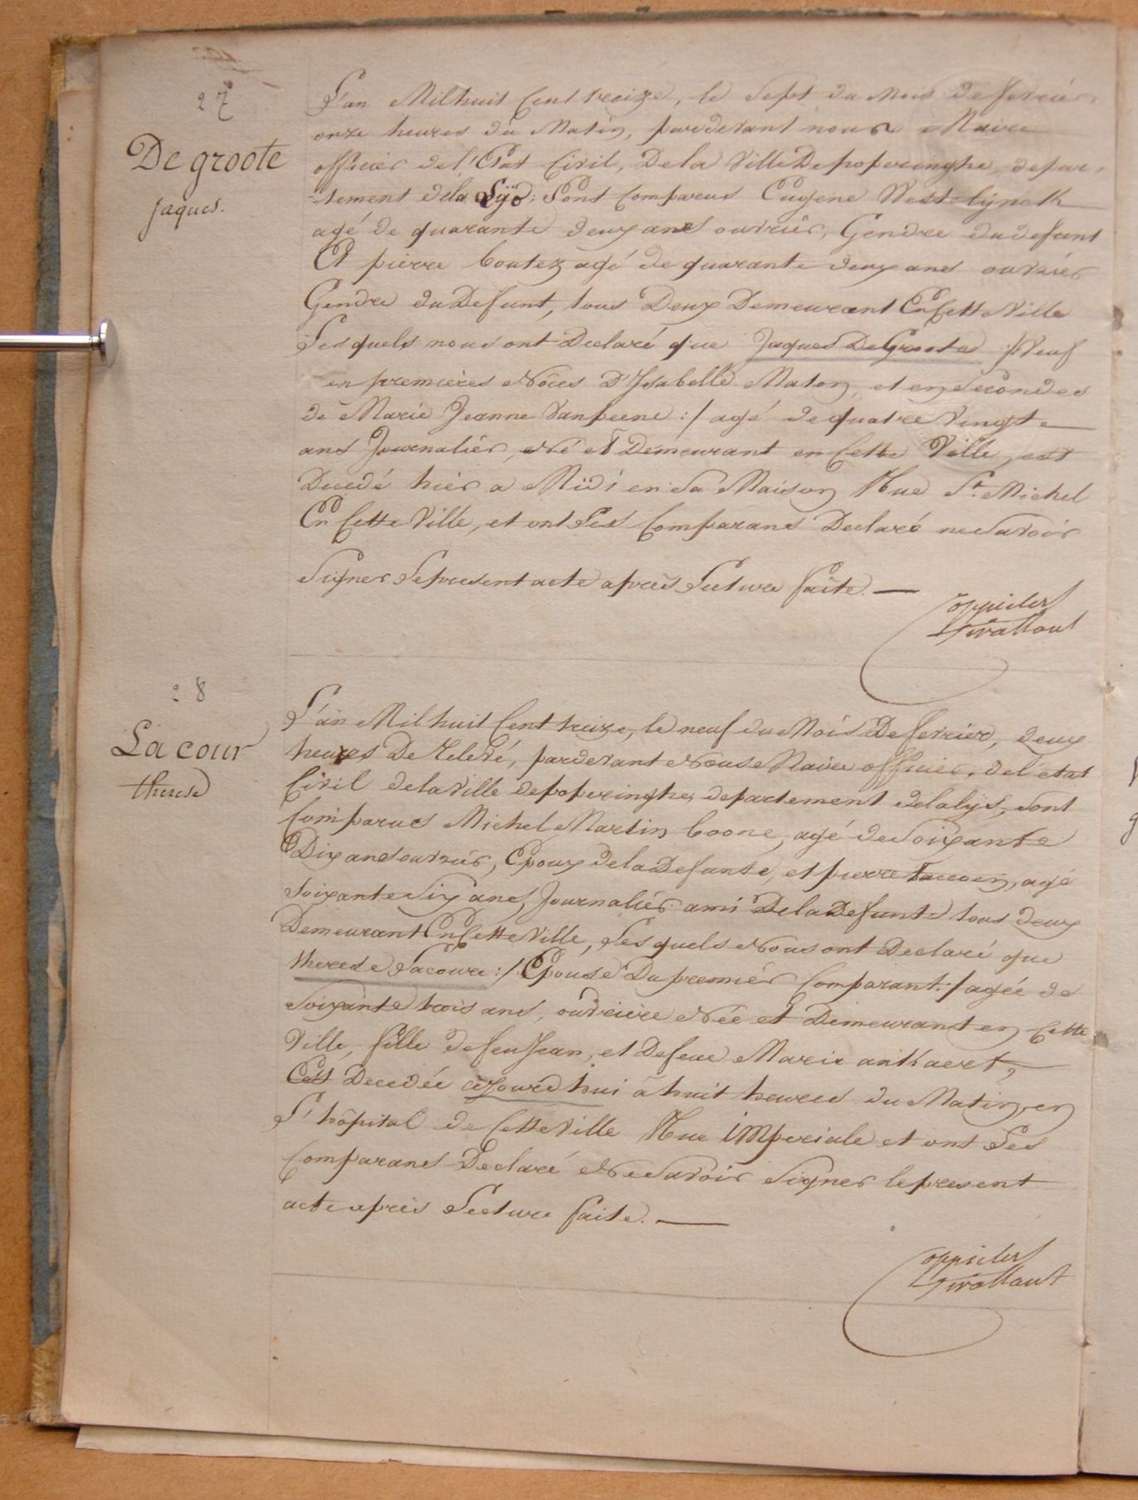 27
De groote
jaques.
L'an Milhuit Cent treize, le Sept du Mois de fevrier,
onze heures du Matin, pardevant nous Maire
officier de l'Etat Civil, De la Ville De poperinghe, depar-
-tement dela Lÿs; Sont Comparus Eugene West-lijnck
agé de quarante deux ans ouvrier, Gendre du defunt
Et pierre boutez agé de quarante deux ans ouvrier
Gendre du Defunt, tous Deux Demeurant En Cette Ville
Lesquels nous ont Declaré que Jaques De Groote Veuf
en premieres Nôces D'Isabelle Maton, et en Secondes
de Marie Jeanne Vanpeene :/ agé de quatre Vingt
ans Journalier, Né et Demeurant en Cette Ville, est
Decedé hier a Midi en Sa Maison Rue St. Michel
En Cette Ville, et ont Les Comparans Declaré ne Savoir
Signer Le present acte après Lecture faite. —
28
La cour
therese
L'an Milhuit Cent treize, le neuf du Mois De fevrier, deux
heures De Relevé, pardevant Nous Maire officier, de l'état
Civil dela Ville de poperinghe, departement dela lijs, sont
Comparus Michel Martin Coone, agé de Soixante
Dix ans ouvrier, Epoux de la Defunte, et pierre agé
Soixante Six ans, Journalier ami De la Defunte tous deux
Demeurant En Cette Ville, Lesquels Nous ont Declaré que
therese Lacour :/ Epouse Du premier Comparant :/ agée de
Soixante trois ans, ouvriere Née et Demeurant en Cette
Ville, fille de feu Jean, et De feue Marie
Est Decedée cejourd'hui à huit heures du Matin en
L'hôpital de Cette Ville Rue iMperiale et ont Les
Comparans Declaré Ne Savoir Signer le present
acte après Lecture faite. —